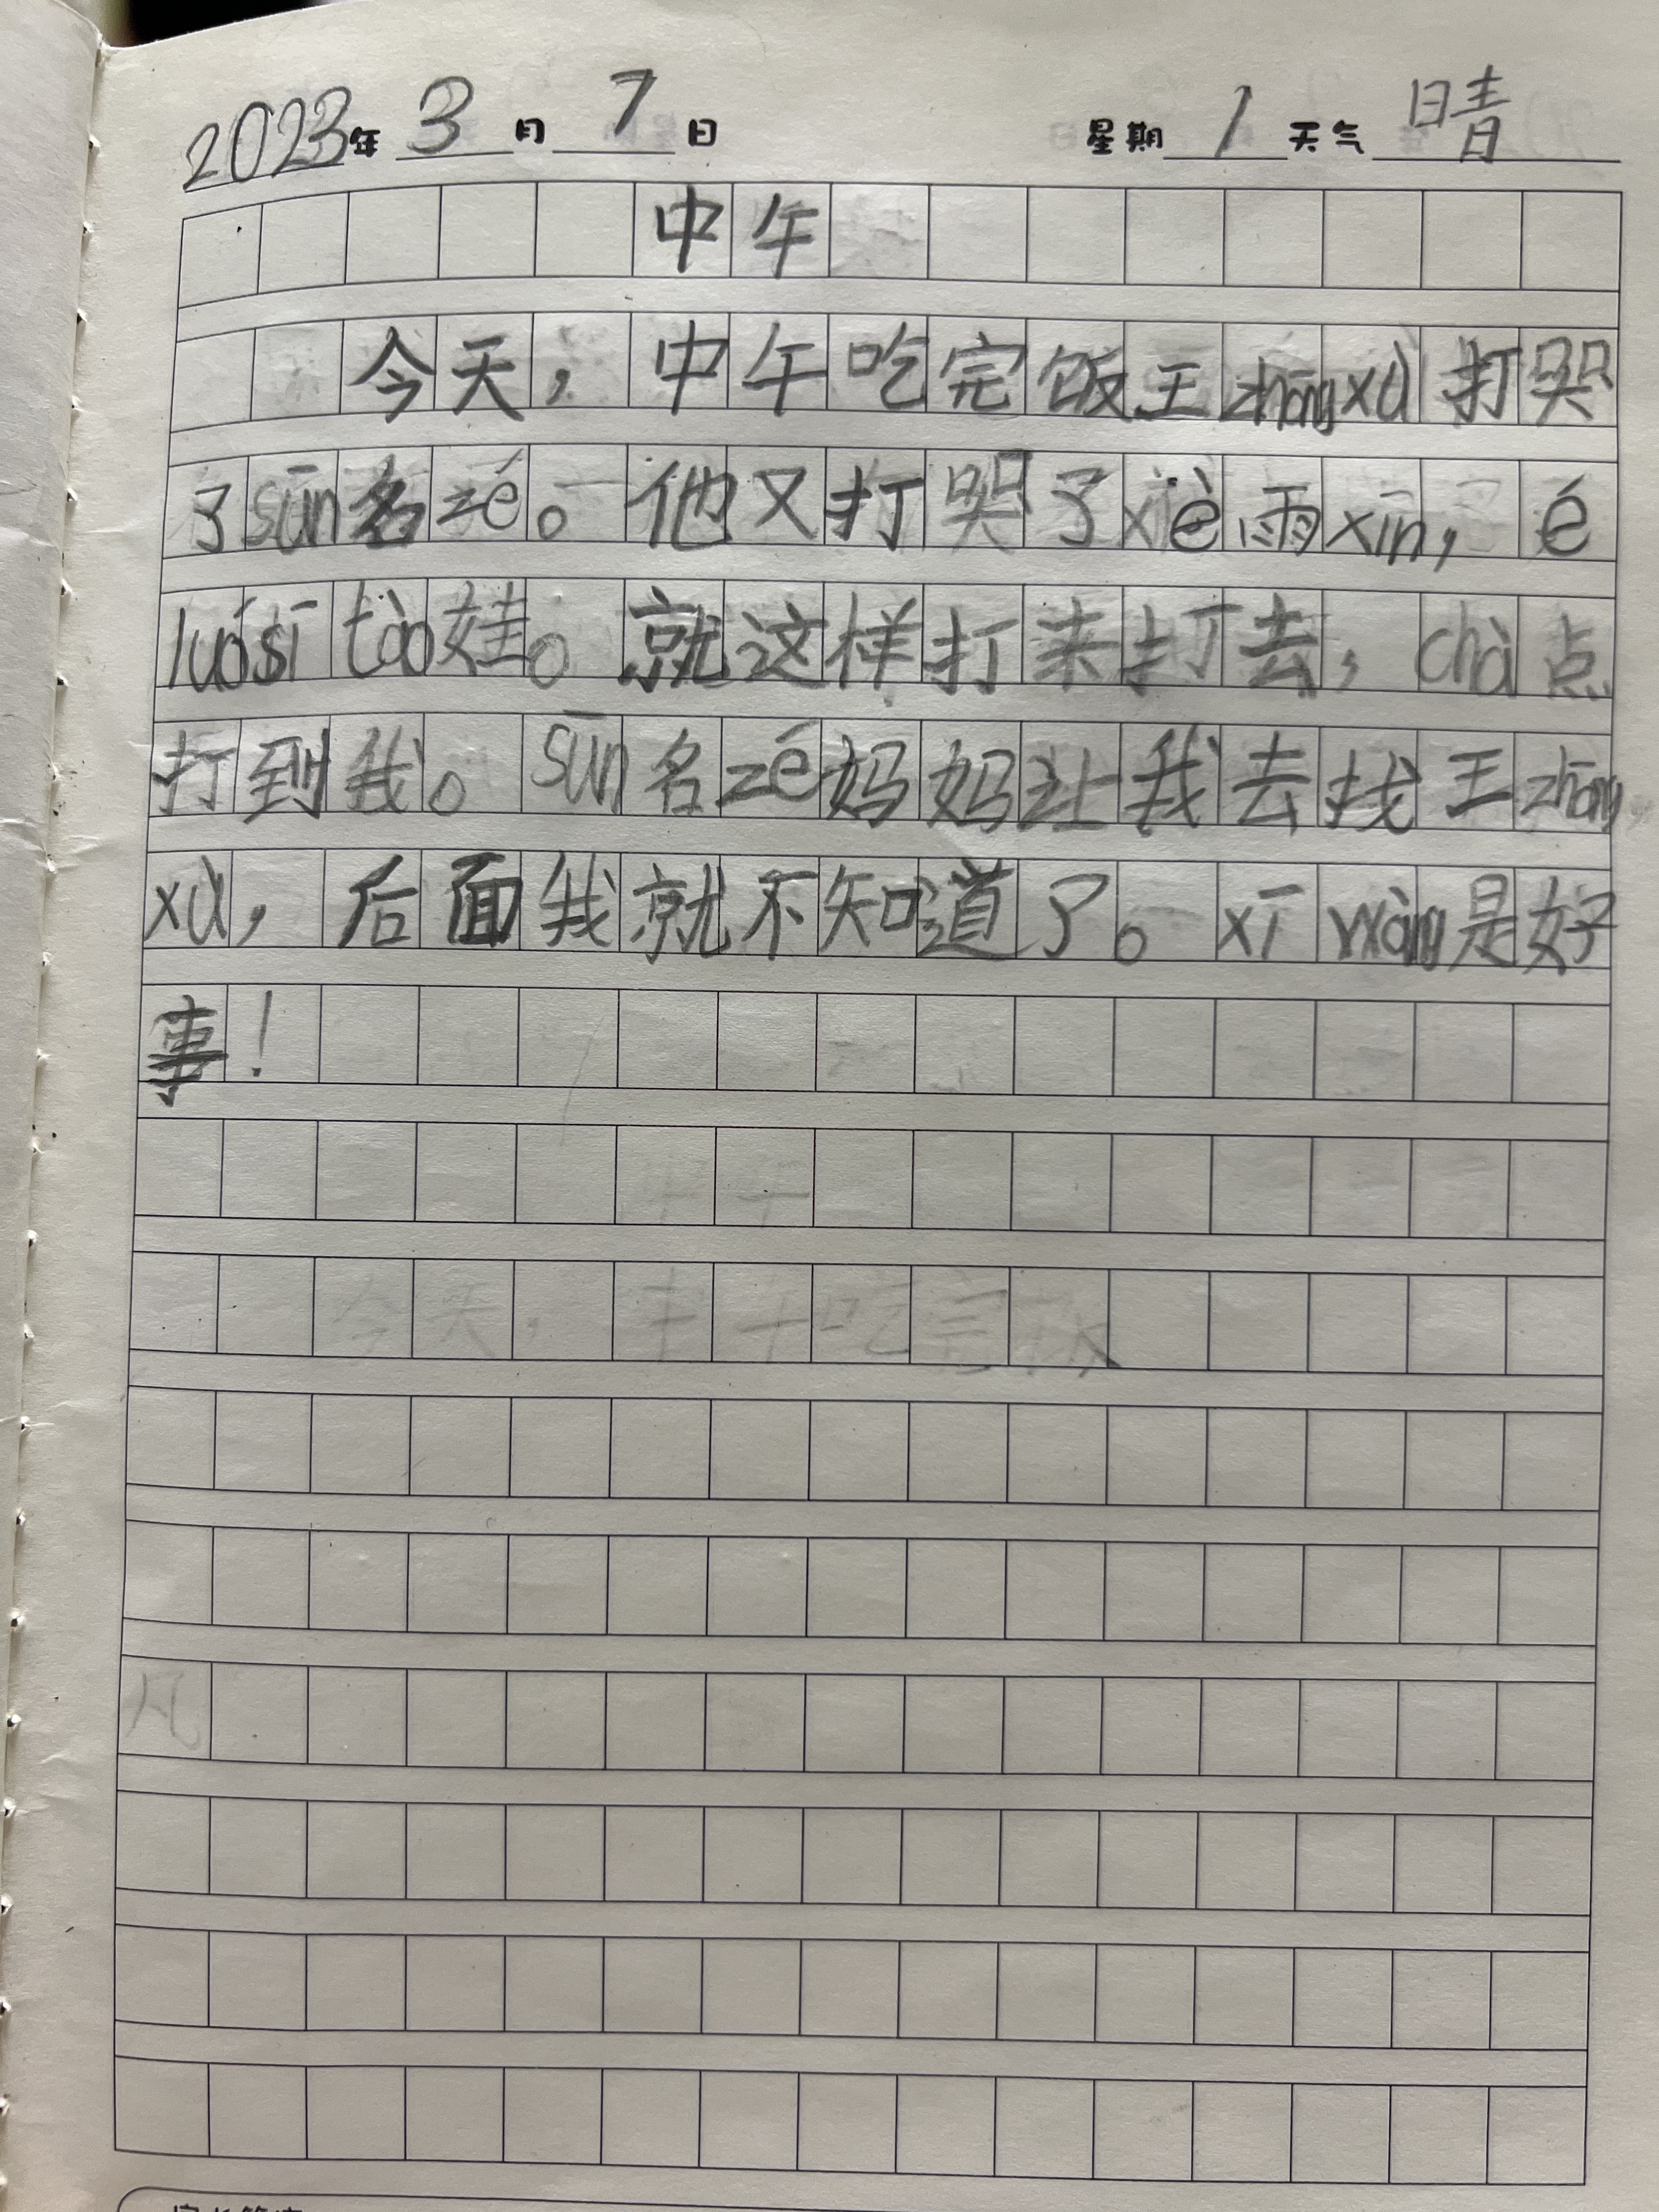 2023年 3 月 7 日 星期 1 天气 晴
中午
今天，中午吃完饭王zhōng xù 打哭
了sūn名zé。他又打哭了xiè雨xīn，é
luó sī tào娃。就这样打来打去，chà点
打到我。sūn名zé妈妈让我去找王zhōng
xù，后面我就不知道了。xī wàng是好
事！